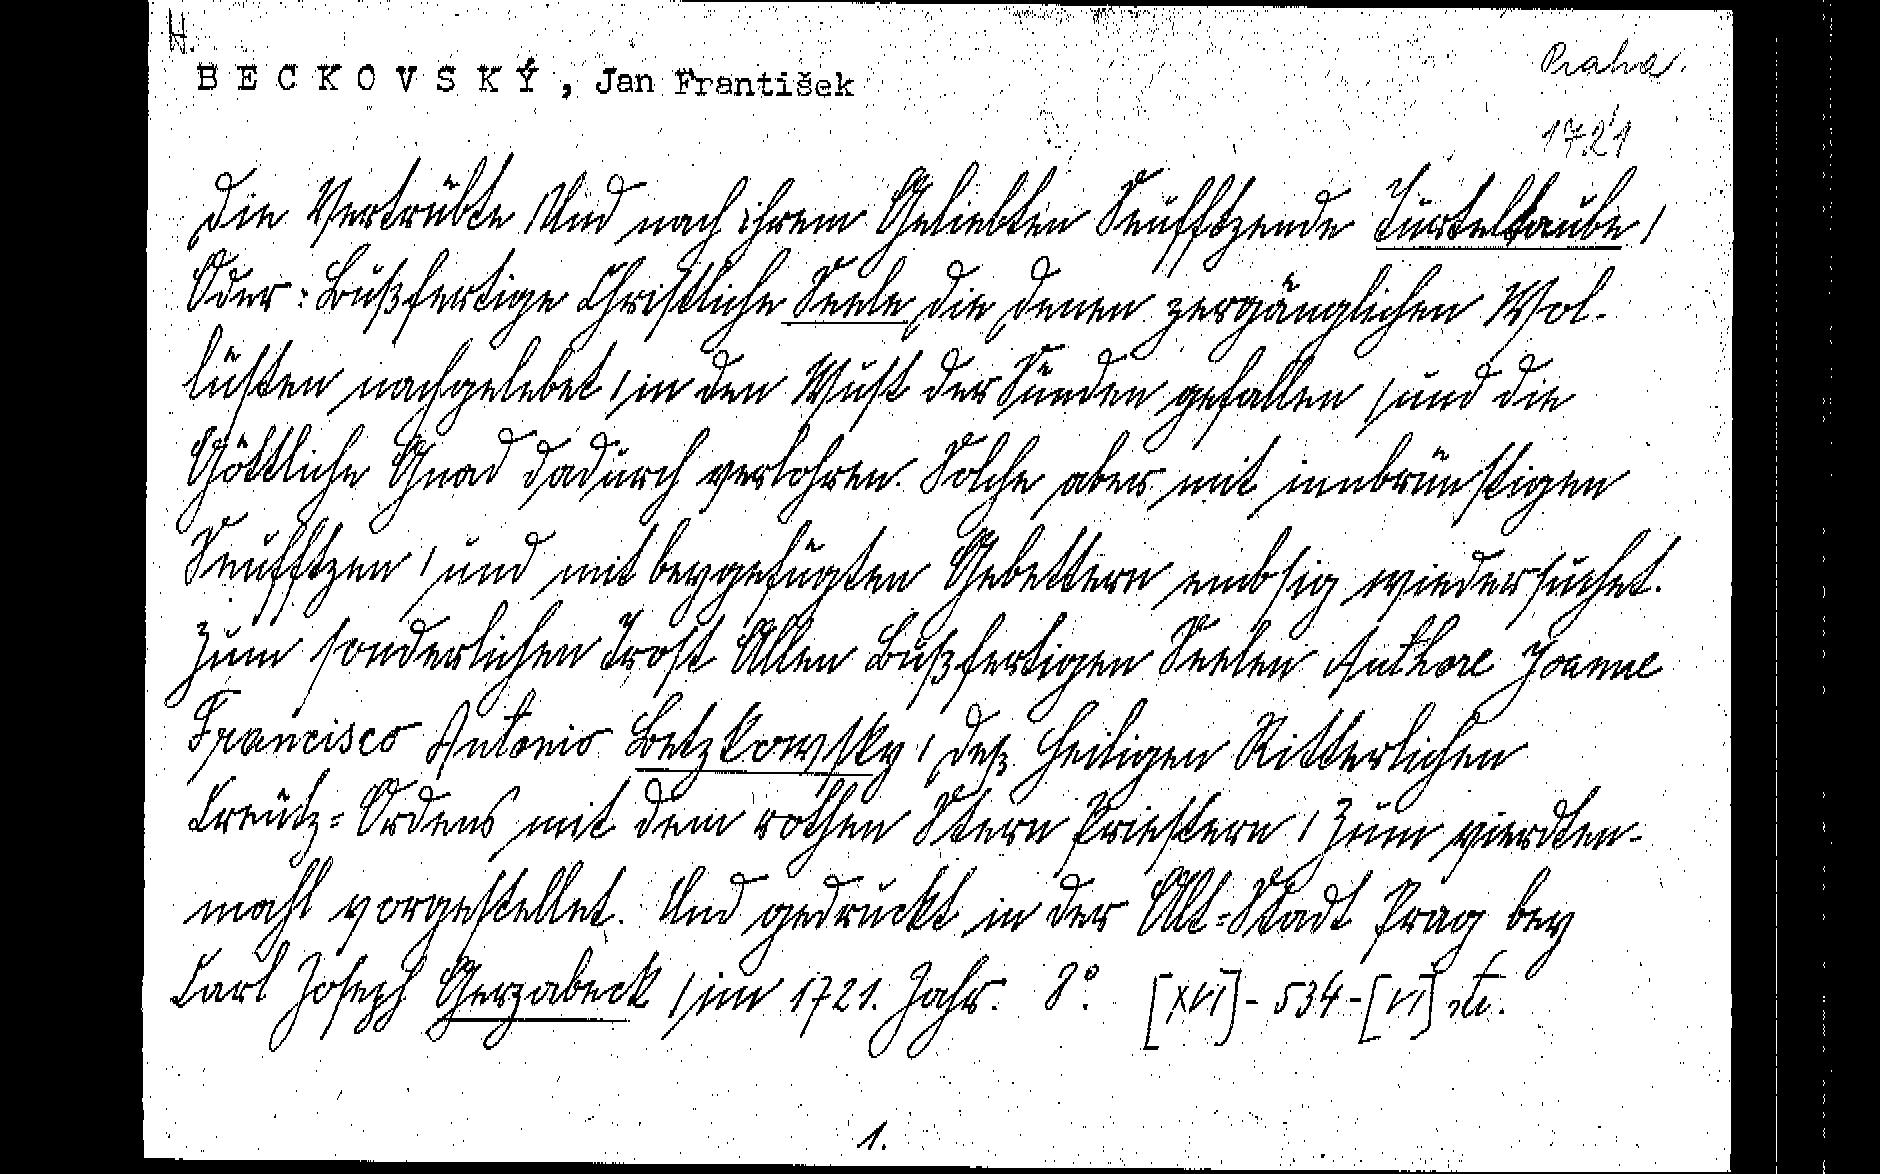 H.
BECKOVSKÝ, Jan František
Praha.
1721
Die Vertrübte / Und nach ihrem Geliebten Seufftzende Turteltaube /
Oder: Bußfertige Christliche Seele die denen zergänglichen Wol-
lüsten nachgelebet / in den Wust der Sünden gefallen / und die
Göttliche Gnad dadurch verlohren. Solche aber mit innbrünstigen
Seufftzen / und mit beygefügten Gebettern embsig wiedersuchet.
Zum sonderlichen Trost Allen Bußfertigen Seelen Authore Joanne
Francisco Antonio Betzkowsky / deß Heiligen Ritterlichen
Creutz-Ordens mit dem rothen Stern Priestern / Zum vierdten-
mahl vorgestellet. Und gedruckt in der Alt-Stadt Prag bey
Carl Joseph Gerzabeck / im 1721. Jahr. 8°. [XVI] - 534 - [VI] str.
1.